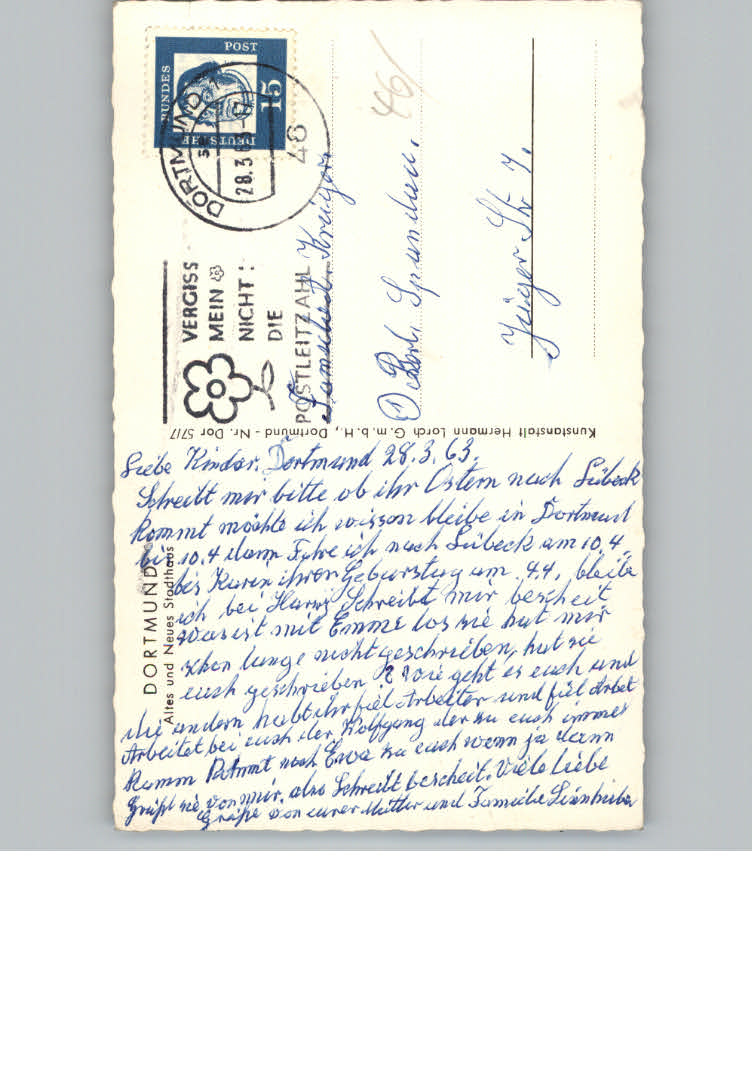 DEUTSCHE BUNDESPOST 15
DORTMUND 1
28.3.63
46
46
VERGISS
MEIN
NICHT!
DIE
POSTLEITZAHL
Krüger
① Berl. Spandau.
Jüger Str 7.
Kunstanstalt Hermann Lorch G.m.b.H., Dortmund - Nr. Dor 57/7
DORTMUND
Altes und Neues Stadthaus
Liebe Kinder. Dortmund 28.3.63.
Schreibt mir bitte ob ihr Ostern nach Lübeck
kommt möchte ich wissen bleibe in Dortmund
bis 10.4 dann Fahre ich nach Lübeck am 10.4.
bis Karin ihren Geburstag am 4.4. bleibe
ich bei Schreibt mir bescheit
was ist mit Emme los sie hat mir
schon lange nicht geschrieben, hat sie
euch geschrieben? Wie geht es euch und
die andern habt ihr fiel Arbeiter und fiel Arbet
Arbeitet bei euch der Wolfgang der zu euch immer
kamm kommt noch Erwa zu euch wenn ja dann
Grüßt sie von mir. also Schreibt bescheit. Viele liebe
Grüße von eurer Mutter und Familie